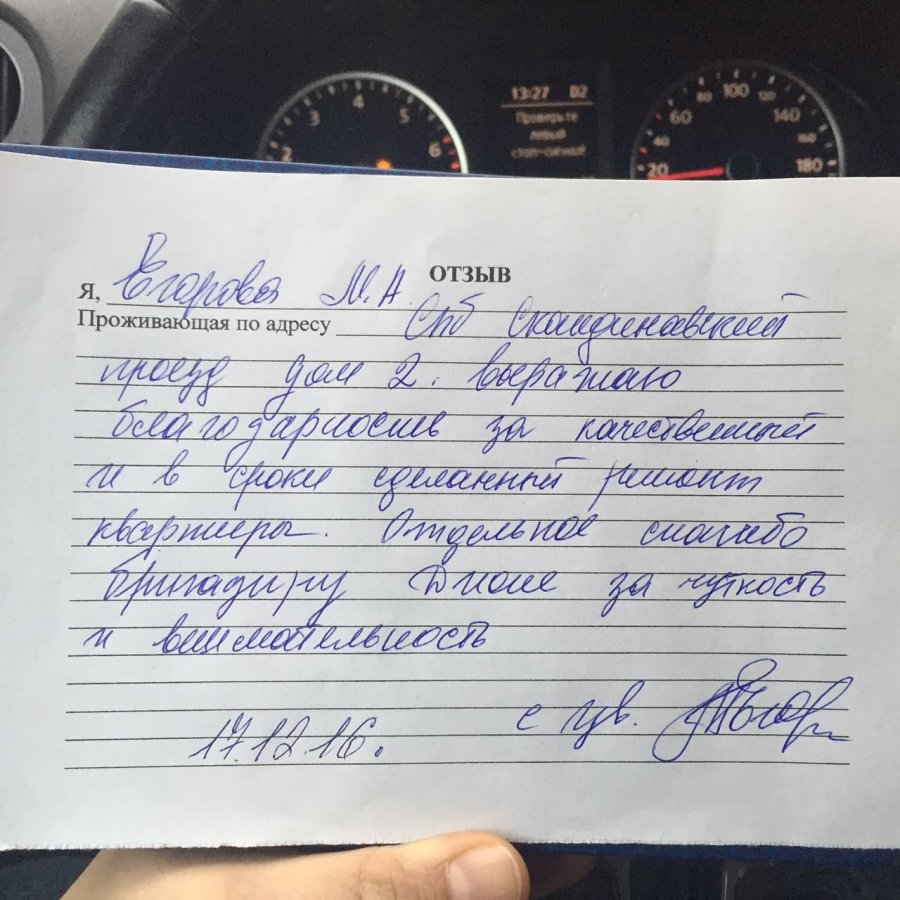 2 3 4 5 6
13:27 02
Проверьте
левый
стоп-сигнал!
20 40 60 80 100 120 140 160 180
ОТЗЫВ
Я, Егорова М.А.
Проживающая по адресу Спб Скандинавский
проезд дом 2. выражаю
благодарность за качественный
и в сроки сделанный ремонт
квартиры. Отдельное спасибо
бригадиру Диме за чуткость
и внимательность
с ув.
17.12.16.